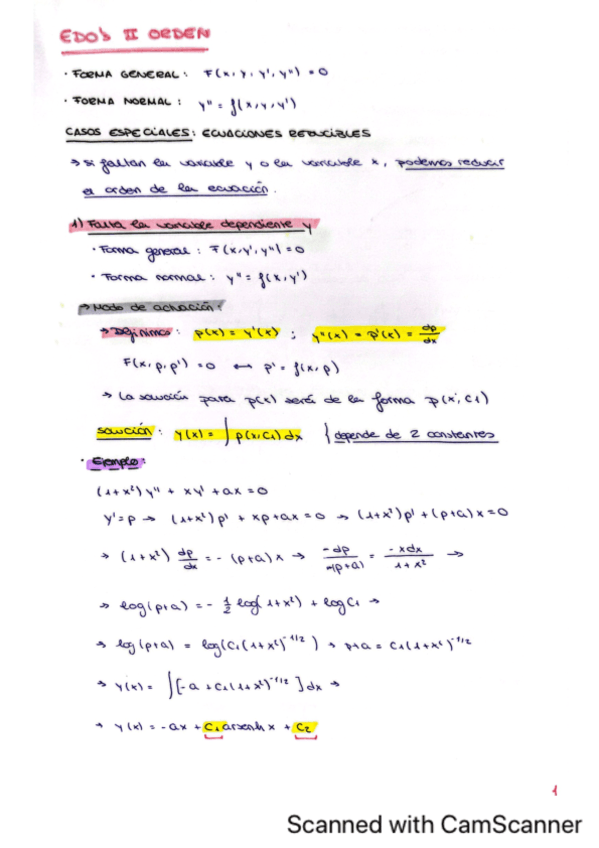 EDO's II ORDEN
· FORMA GENERAL: F(x, y, y', y'') = 0
· FORMA NORMAL: y'' = f(x, y, y')
CASOS ESPECIALES: ECUACIONES REDUCIBLES
→ si faltan la variable y o la variable x, podemos reducir
el orden de la ecuación.
1) Falta la variable dependiente y
· Forma general: F(x, y', y'') = 0
· Forma normal: y'' = f(x, y')
→ Modo de actuación:
→ Definimos: p(x) = y'(x) ; y''(x) = p'(x) = dp/dx
F(x, p, p') = 0 ↔ p' = f(x, p)
→ La solución para p(x) será de la forma p(x, C1)
solución: y(x) = ∫ p(x, C1) dx { depende de 2 constantes
· Ejemplo:
(1+x²) y'' + xy' + ax = 0
y' = p → (1+x²) p' + xp + ax = 0 → (1+x²) p' + (p+a) x = 0
→ (1+x²) dp/dx = - (p+a) x → -dp/-(p+a) = -xdx/1+x² →
→ log(p+a) = - 1/2 log(1+x²) + log C1 →
→ log(p+a) = log(C1(1+x²)^-1/2) → p+a = C1(1+x²)^-1/2
→ y(x) = ∫ [-a + C1(1+x²)^-1/2] dx →
→ y(x) = -ax + C1 arsenh x + C2
1
Scanned with CamScanner